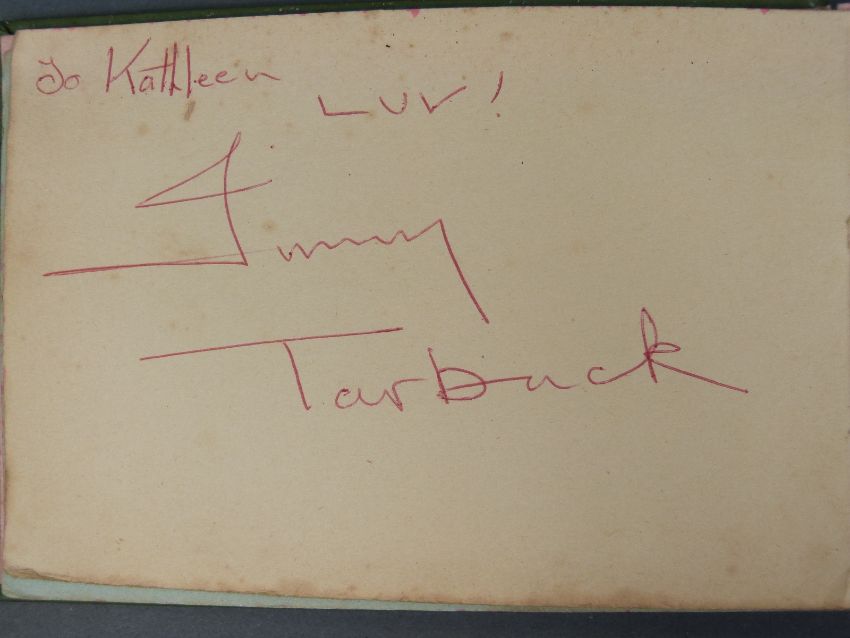 To Kathleen
LUV!
Jimmy
Tarbuck